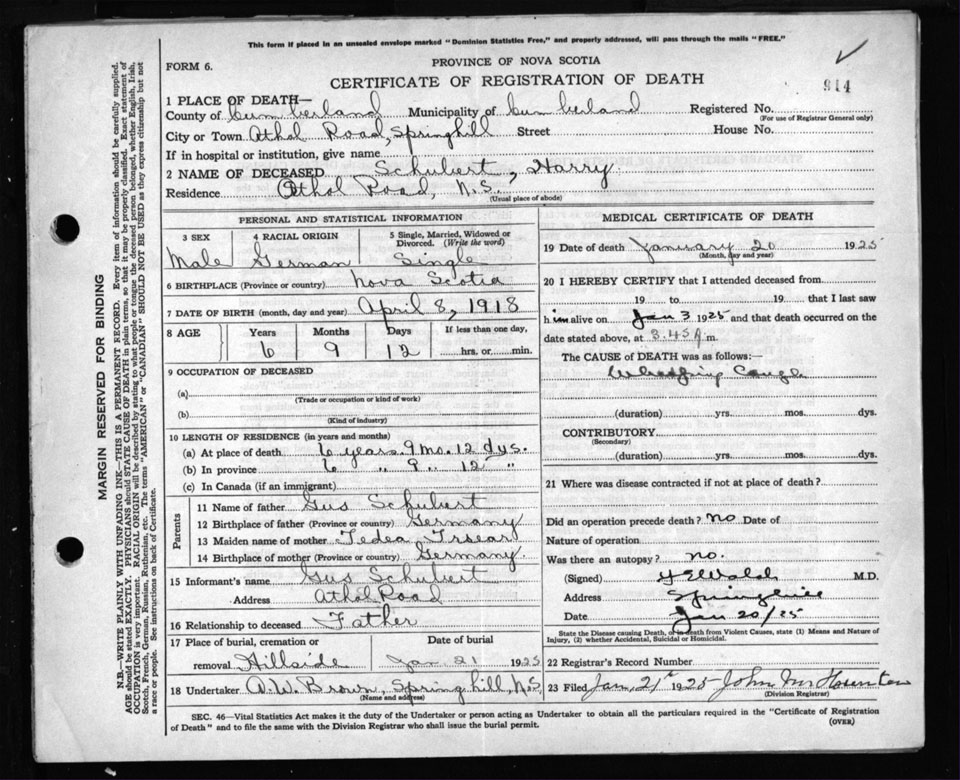 This form if placed in an unsealed envelope marked "Dominion Statistics Free," and properly addressed, will pass through the mails "FREE."
FORM 6.
PROVINCE OF NOVA SCOTIA
CERTIFICATE OF REGISTRATION OF DEATH
914
1 PLACE OF DEATH—
County of Cumberland Municipality of Cumberland Registered No.
(For use of Registrar General only)
City or Town Athol Road, Springhill Street House No.
If in hospital or institution, give name
2 NAME OF DECEASED Schubert, Harry
Residence Athol Road, N.S.
(Usual place of abode)
PERSONAL AND STATISTICAL INFORMATION
3 SEX 4 RACIAL ORIGIN 5 Single, Married, Widowed or Divorced. (Write the word)
Male German Single
6 BIRTHPLACE (Province or country) Nova Scotia
7 DATE OF BIRTH (month, day and year) April 8, 1918
8 AGE Years Months Days If less than one day,
6 9 12 hrs. or, min.
9 OCCUPATION OF DECEASED
(a)
(Trade or occupation or kind of work)
(b)
(Kind of industry)
10 LENGTH OF RESIDENCE (in years and months)
(a) At place of death 6 years. 9 mo. 12 dys.
(b) In province 6 " 9 " 12 "
(c) In Canada (if an immigrant)
Parents
11 Name of father Gus Schubert
12 Birthplace of father (Province or country) Germany
13 Maiden name of mother
14 Birthplace of mother (Province or country) Germany
15 Informant's name Gus Schubert
Address Athol Road
16 Relationship to deceased Father
17 Place of burial, cremation or removal Hillside
Date of burial Jan 21 1925
18 Undertaker A.W. Brown, Springhill, N.S.
(Name and address)
MEDICAL CERTIFICATE OF DEATH
19 Date of death January 20 1925
(Month, day and year)
20 I HEREBY CERTIFY that I attended deceased from
19 to 19 that I last saw
h im alive on Jan 3 1925 and that death occurred on
date stated above, at 3.45 A m.
The CAUSE of DEATH was as follows:—
Whooping Cough
(duration) yrs. mos. dys.
CONTRIBUTORY
(Secondary)
(duration) yrs. mos. dys.
21 Where was disease contracted if not at place of death?
Did an operation precede death? no Date of
Nature of operation
Was there an autopsy? no.
(Signed) M.D.
Address Springhill
Date Jan 20/25
State the Disease causing Death, or in death from Violent Causes, state (1) Means and Nature of
Injury, (2) whether Accidental, Suicidal or Homicidal.
22 Registrar's Record Number
23 Filed Jan. 21st 1925 John
(Division Registrar)
SEC. 46—Vital Statistics Act makes it the duty of the Undertaker or person acting as Undertaker to obtain all the particulars required in the "Certificate of Registration
of Death" and to file the same with the Division Registrar who shall issue the burial permit.
(OVER)
MARGIN RESERVED FOR BINDING
N.B.—WRITE PLAINLY WITH UNFADING INK—THIS IS A PERMANENT RECORD. Every item of information should be carefully supplied.
AGE should be stated EXACTLY. PHYSICIANS should STATE CAUSE OF DEATH in plain terms, so that it may be properly classified. Exact statement of
OCCUPATION is very important. RACIAL ORIGIN will be described by stating to what people or tongue the deceased person belonged, whether English, Irish,
Scotch, French, German, Russian, Ruthenian, etc. The terms "AMERICAN" or "CANADIAN" SHOULD NOT BE USED as they express citizenship but not
a race or people. See instructions on back of Certificate.